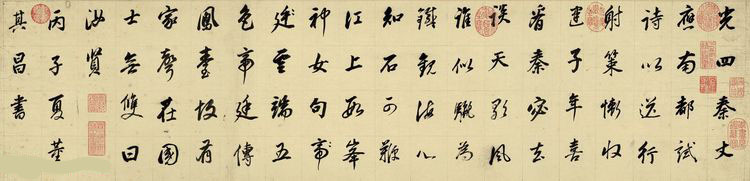 光四秦丈
應南都試
詩以送行
射策慚收
建子年喜
看秦宓在
談天歌風
誰似驪為
鐵觀海心
知石可鞭
江上數峯
神女句帝
廷雲端五
色帝廷傳
鳳臺故有
家聲在國
士無雙曰
汝賢
丙子夏董
其昌書